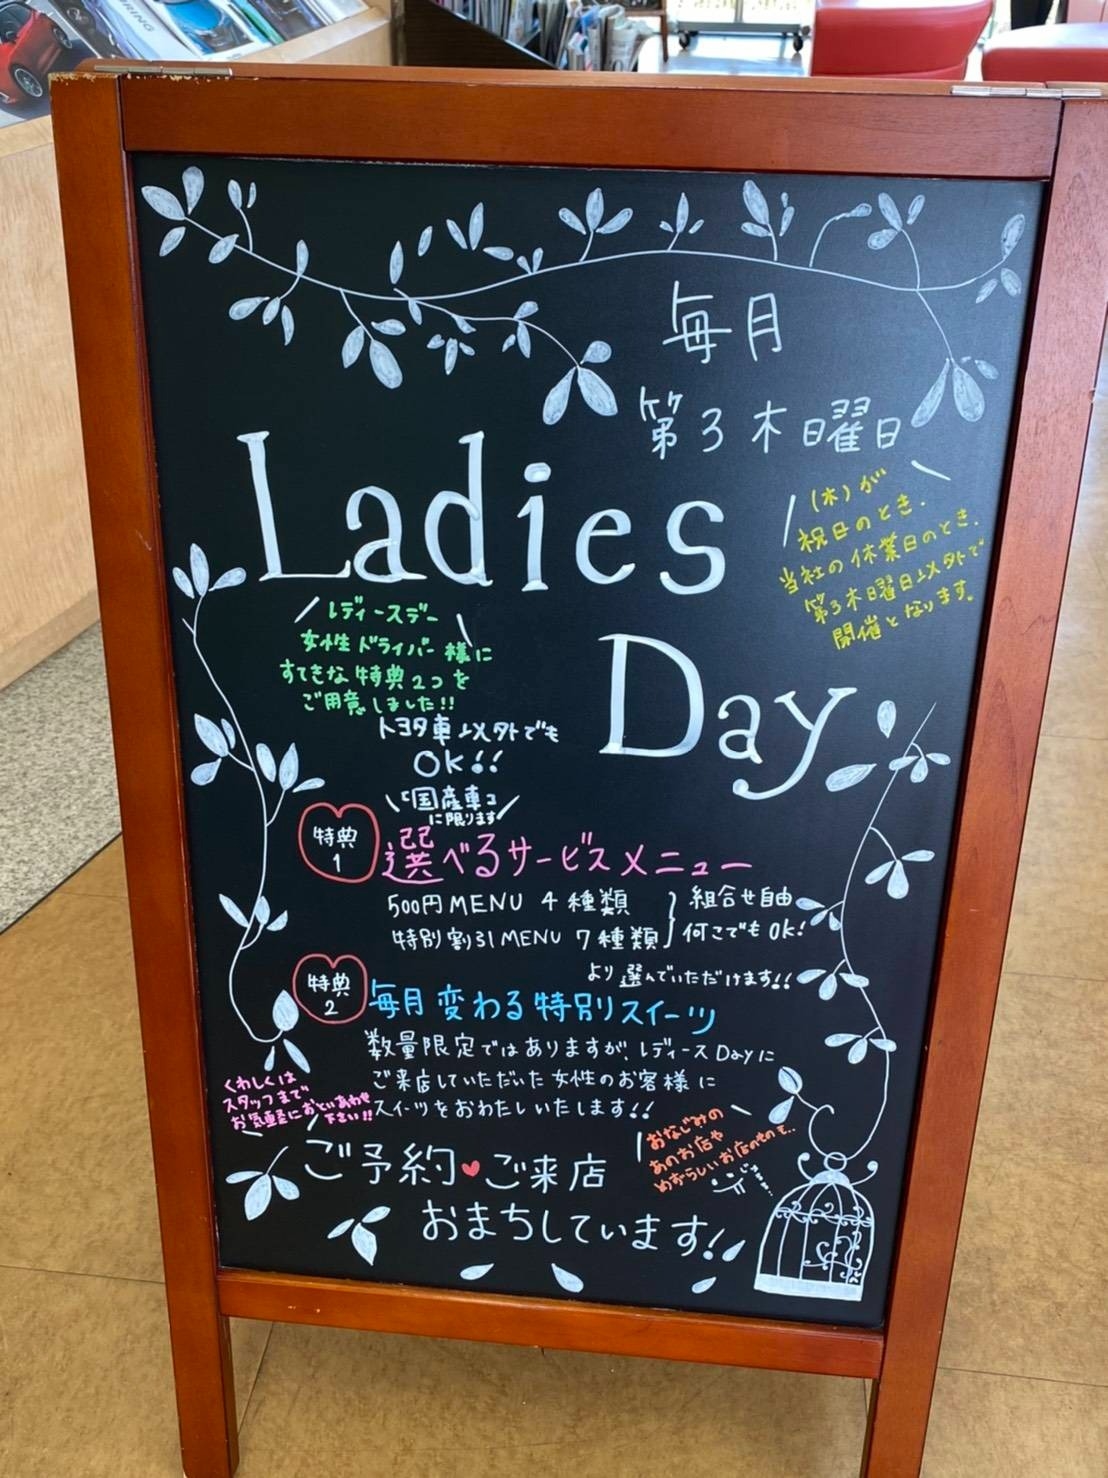 毎月
第3木曜日
Ladies
Day
(木)が
祝日のとき、
当社の休業日のとき、
第3木曜日以外で
開催となります。
レディースデー
女性ドライバー様に
すてきな特典2コを
ご用意しました!!
トヨタ車以外でも
OK!!
「国産車」
に限ります
特典
1
選べるサービスメニュー
500円MENU 4種類
特別割引MENU 7種類
組合せ自由
何こでもOK!
より選んでいただけます!!
特典
2
毎月変わる特別スイーツ
数量限定ではありますが、レディースDayに
ご来店していただいた女性のお客様に
スイーツをおわたしいたします!!
くわしくは
スタッフまで
お気軽におといあわせ
下さい!!
おなじみの
あのお店や
めずらしいお店のものも...
ご予約♥ご来店
おまちしています!!